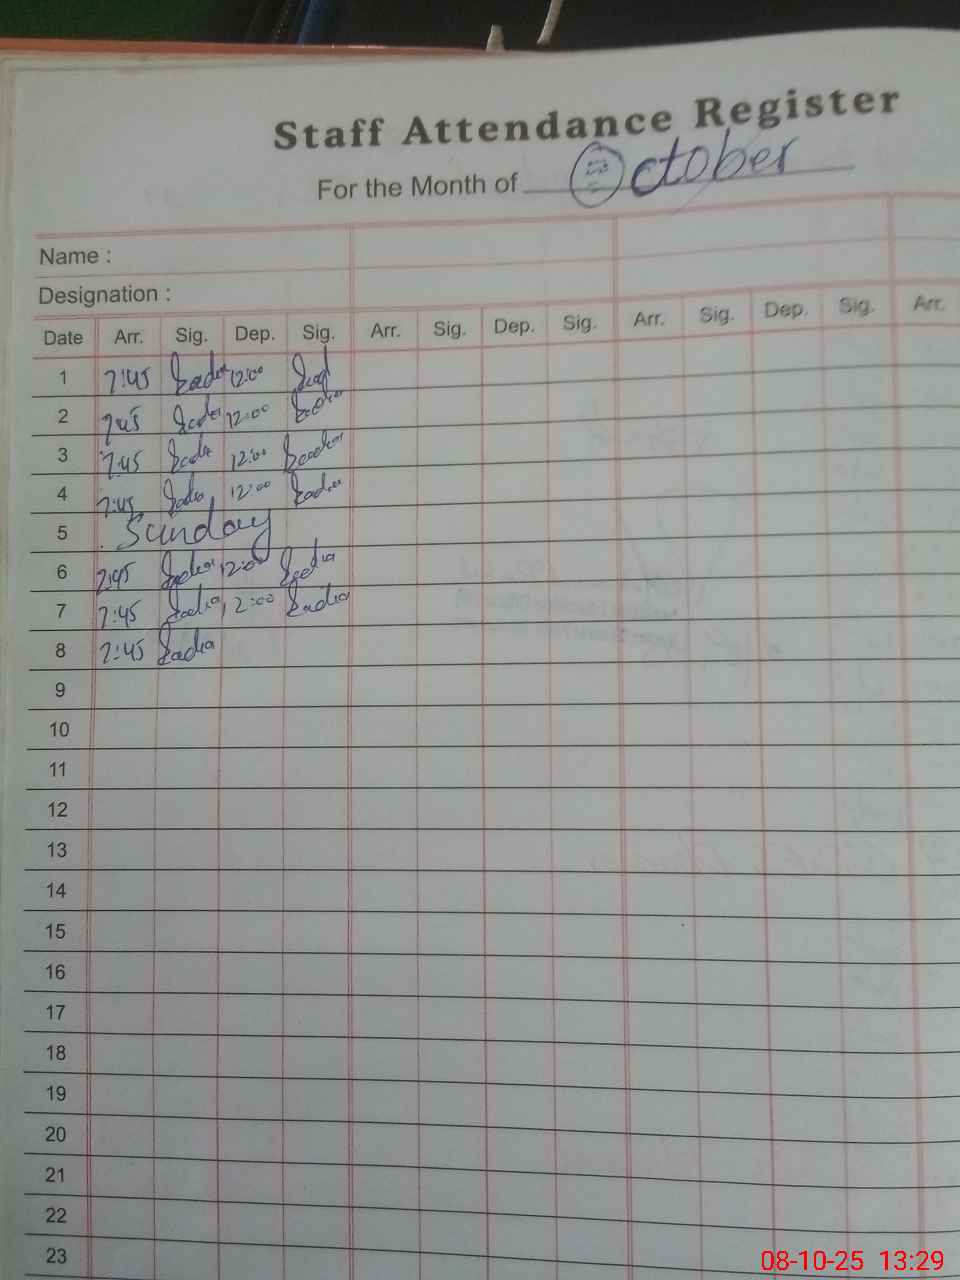 Staff Attendance Register
For the Month of October
Name :
Designation :
Date Arr. Sig. Dep. Sig. Arr. Sig. Dep. Sig. Arr. Sig. Dep. Sig. Arr.
1 7:45 Sadia 12:00 Sad
2 7:45 Sadia 12:00 Sadia
3 7:45 Sadia 12:00 Sadia
4 7:45 Sadia 12:00 Sadia
5 Sunday
6 7:45 Sadia 12:00 Sadia
7 7:45 Sadia 12:00 Sadia
8 7:45 Sadia
9
10
11
12
13
14
15
16
17
18
19
20
21
22
23
08-10-25 13:29